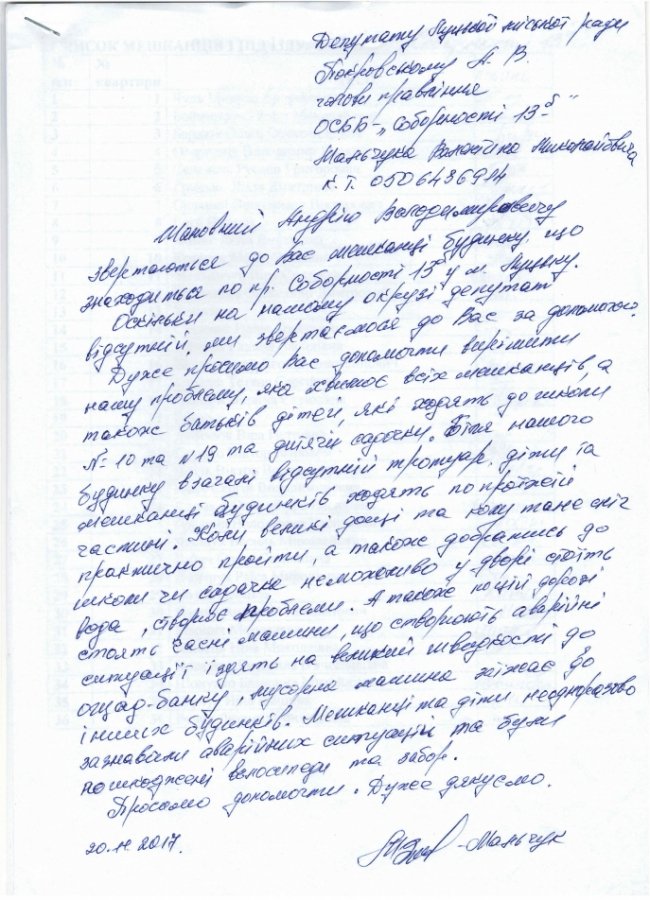 Депутату Луцької міської ради
Покровському А. В.
голови правління
ОСББ - „Соборності 13б"
Маньчука Валентина Миколайовича
к. т. 0506436914
Шановний Андрію Володимировичу
звертаються до Вас мешканці будинку, що
знаходиться по пр. Соборності 13б у м. Луцьку.
Оскільки на нашому окрузі депутат
відсутній, ми звертаємося до Вас за допомогою.
Дуже просимо Вас допомогти вирішити
нашу проблему, яка хвилює всіх мешканців, а
також батьків дітей, які ходять до школи
№ 10 та №19 та дитячі садочки. Біля нашого
будинку взагалі відсутній тротуар, діти та
мешканці будинків ходять по проїжджій
частині. Коли великі дощі та коли тане сніг
практично пройти, а також добратись до
школи чи садочка неможливо у дворі стоїть
вода, створює проблеми. А також по цій дорозі
стоять часні машини, що створюють аварійні
ситуації їздять на великій швидкості до
ощад-банку, мусорна машина заїжає до
інших будинків. Мешканці та діти неодноразово
зазнавали аварійних ситуацій та були
пошкоджені велосипеди та забор.
Просимо допомогти. Дуже дякуємо.
20.11.2017. - Маньчук